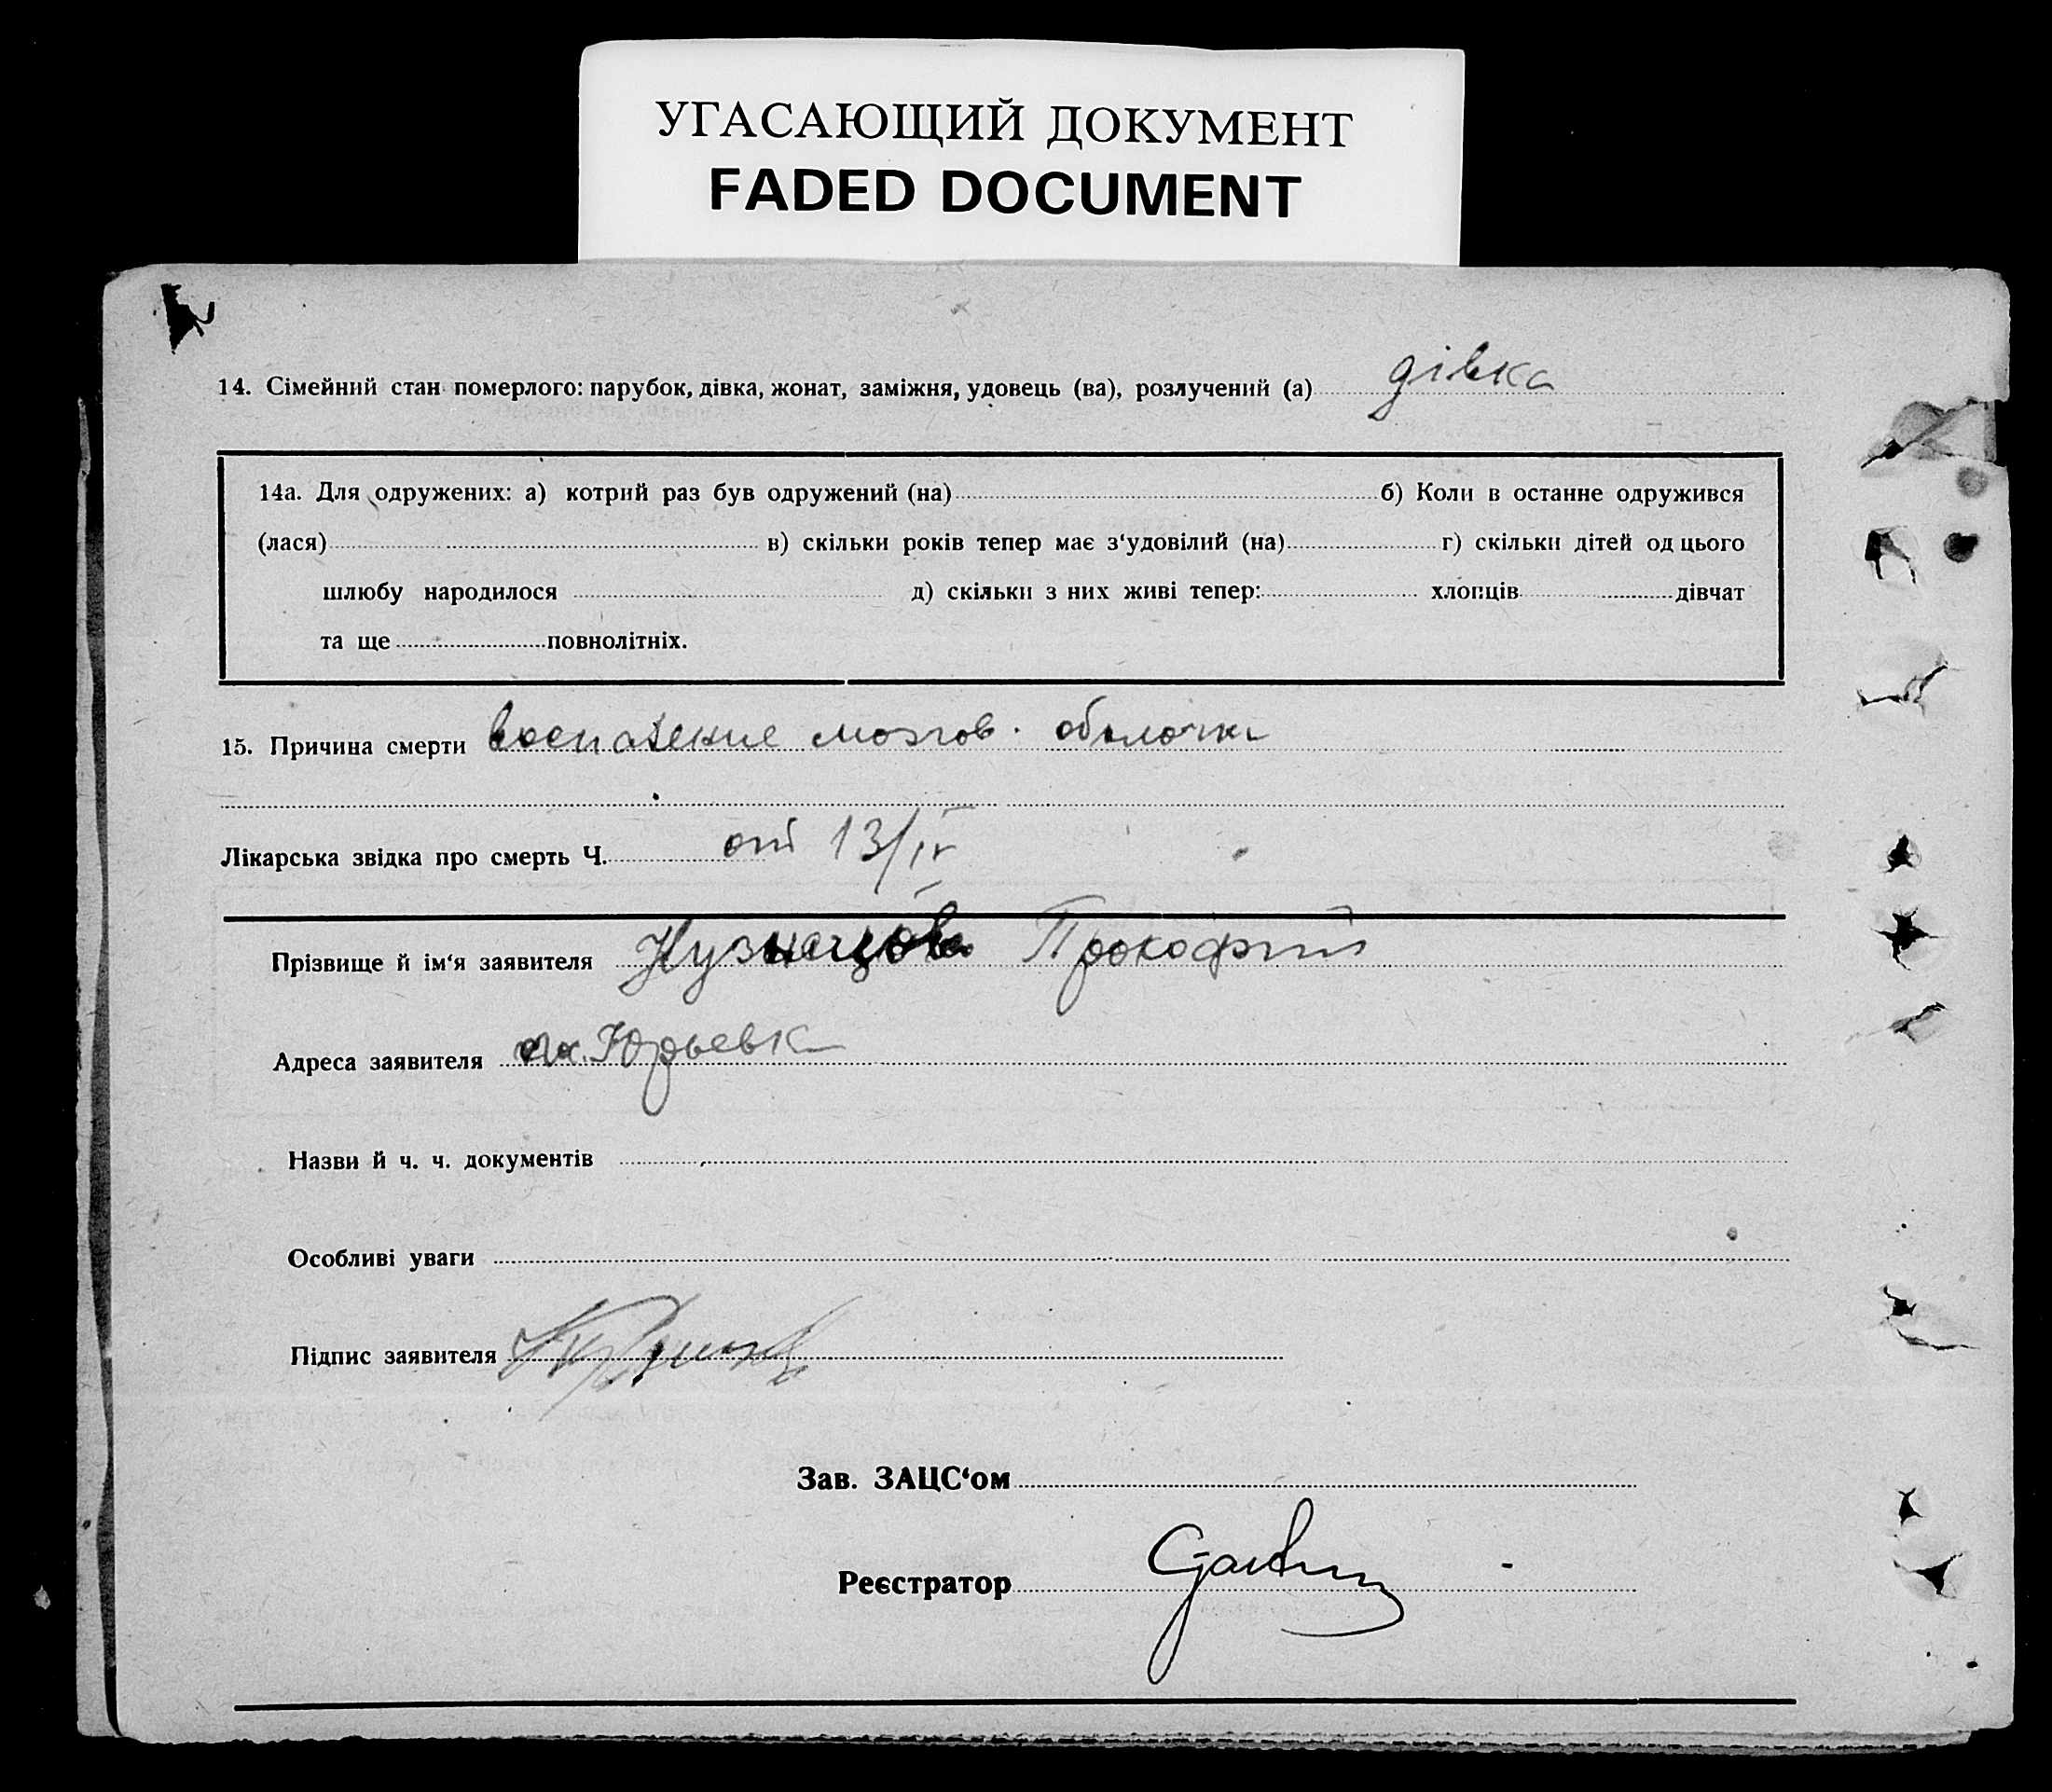 УГАСАЮЩИЙ ДОКУМЕНТ
FADED DOCUMENT
14. Сімейний стан померлого: парубок, дівка, жонат, заміжня, удовець (ва), розлучений (а) дівка
14а. Для одружених: а) котрий раз був одружений (на) б) Коли в останнє одружився
(лася) в) скільки років тепер має з‘удовілий (на) г) скільки дітей од цього
шлюбу народилося д) скільки з них живі тепер: хлопців дівчат
та ще повнолітніх.
15. Причина смерти воспаление мозгов. оболочки
Лікарська звідка про смерть Ч. от 13/IV
Прізвище й ім‘я заявителя Кузнецова Прокофий
Адреса заявителя Юрьевка
Назви й ч. ч. документів
Особливі уваги
Підпис заявителя
Зав. ЗАЦС‘ом
Реєстратор